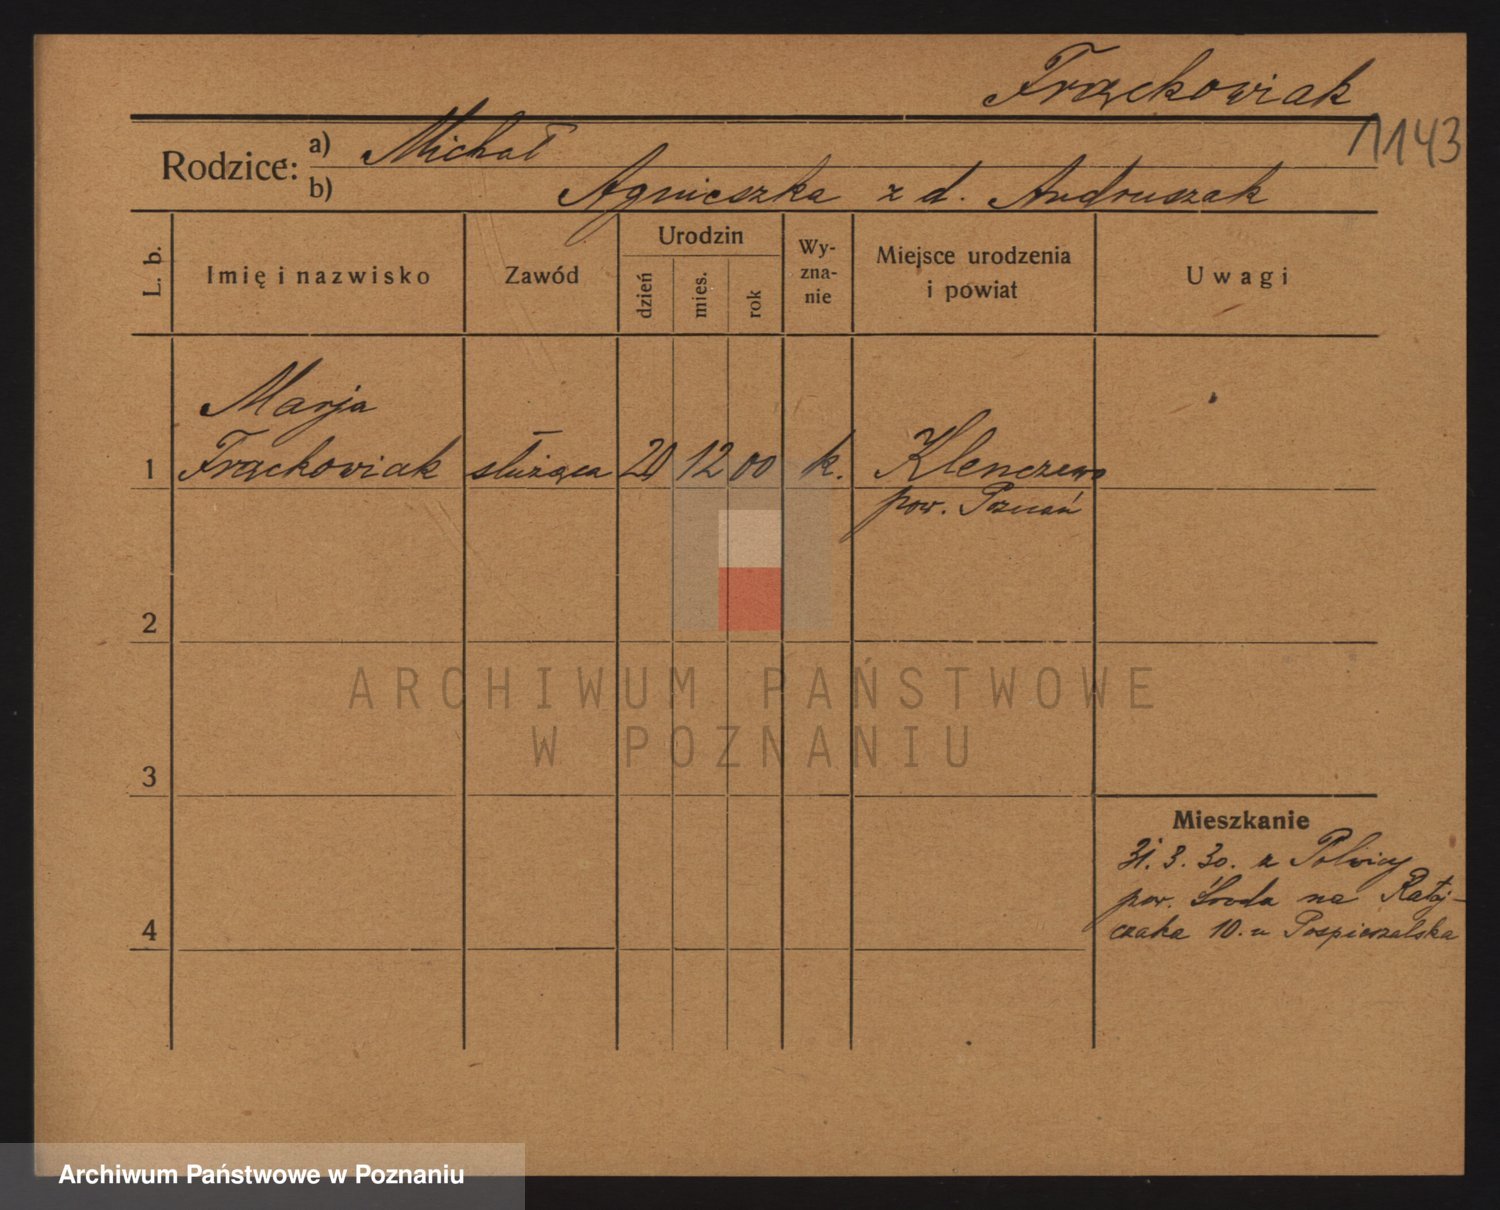 Frąckowiak
1143
Rodzice: a) Michał
b) Agnieszka z d. Andruszak
L. b.
Imię i nazwisko
Zawód
Urodzin
dzień
mies.
rok
Wy-
zna-
nie
Miejsce urodzenia
i powiat
Uwagi
Marja
1 Frąckowiak służąca 12 00 k. Klenczewo
pow. Poznań
2
ARCHIWUM PAŃSTWOWE
W POZNANIU
3
Mieszkanie
31. 3. 30. z Polwicy
pow. Środa na Rataj-
czaka 10. u Pospieszalska
4
Archiwum Państwowe w Poznaniu